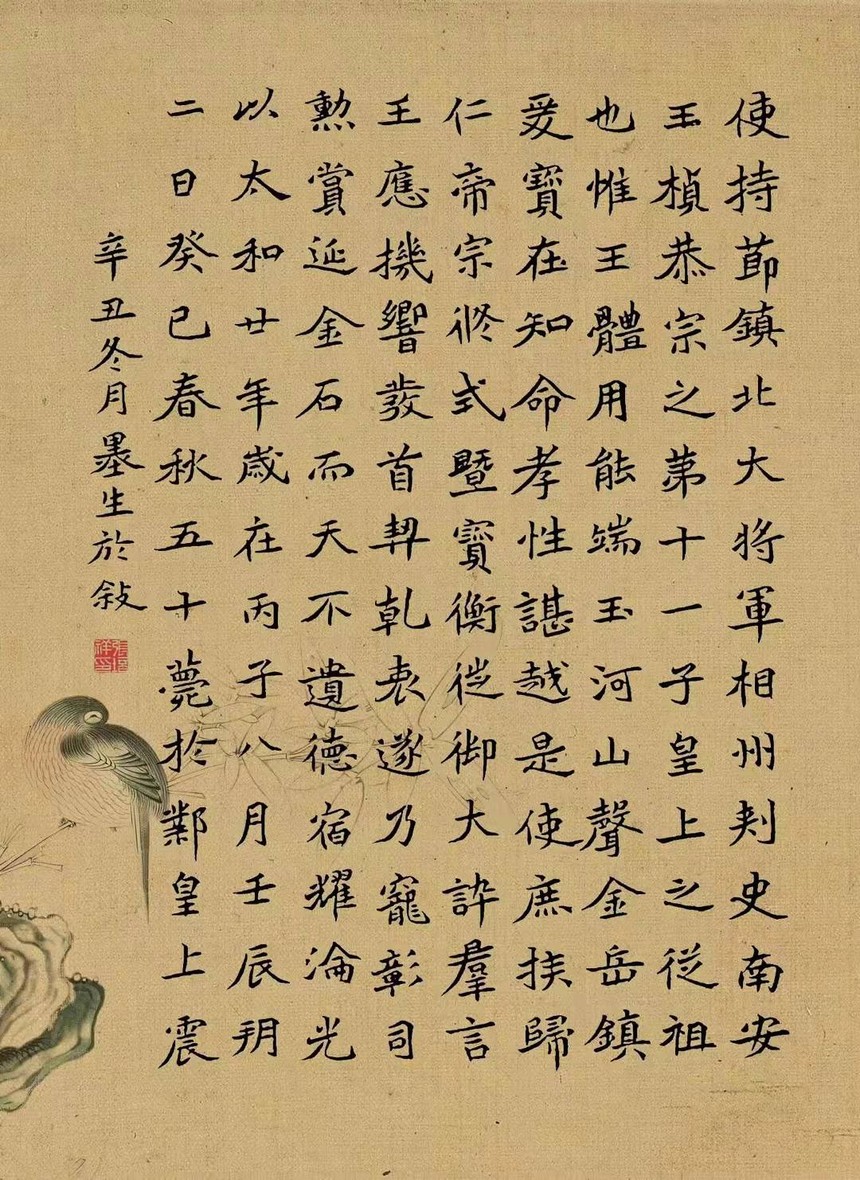 使持節鎮北大將軍相州刾史南安
王楨恭宗之苐十一子皇上之從祖
也惟王體用能端玉河山聲金岳鎮
爰寶在知命孝性諶越是使庶族歸
仁帝宗攸式暨寶衡徙御大誶羣言
王應機響發首契乾衷遂乃寵彰司
勲賞延金石而天不遺德宿耀淪光
以太和廿年歲在丙子八月壬辰朔
二日癸巳春秋五十薨於鄴皇上震
辛丑冬月墨生於敍